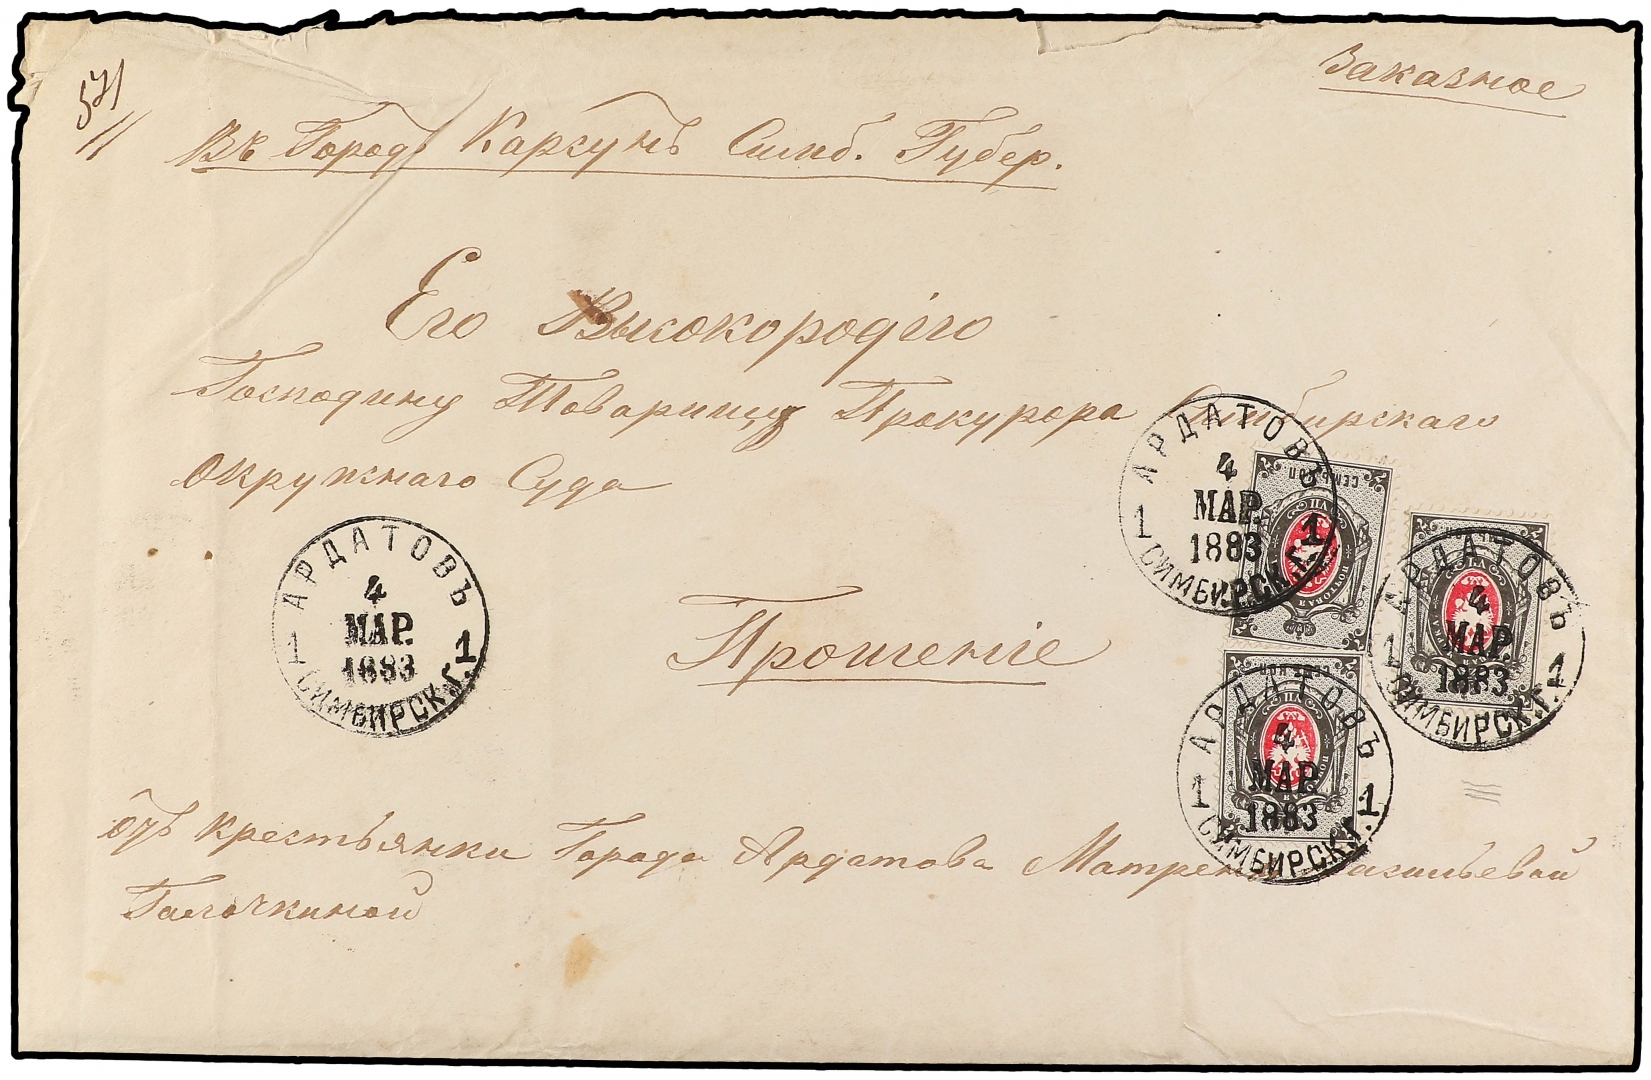 Заказное
571
Въ Городъ Карсунъ Симб. Губер.
Его Высокородію
Господину Товарищу Прокурора Симбирскаго
Окружнаго Суда
АРДАТОВЪ
4
МАР.
1883
1 1
СИМБИРСК.Г.
АРДАТОВЪ
4
МАР.
1883
1 1
СИМБИРСК.Г.
СЕМЬ КОП
ПОЧТОВАЯ МАРКА
АРДАТОВЪ
4
МАР.
1883
1 1
СИМБИРСК.Г.
Прошеніе
АРДАТОВЪ
4
МАР.
1883
1 1
СИМБИРСК.Г.
отъ крестьянки Города Ардатова Матрены Васильевой
Галочкиной